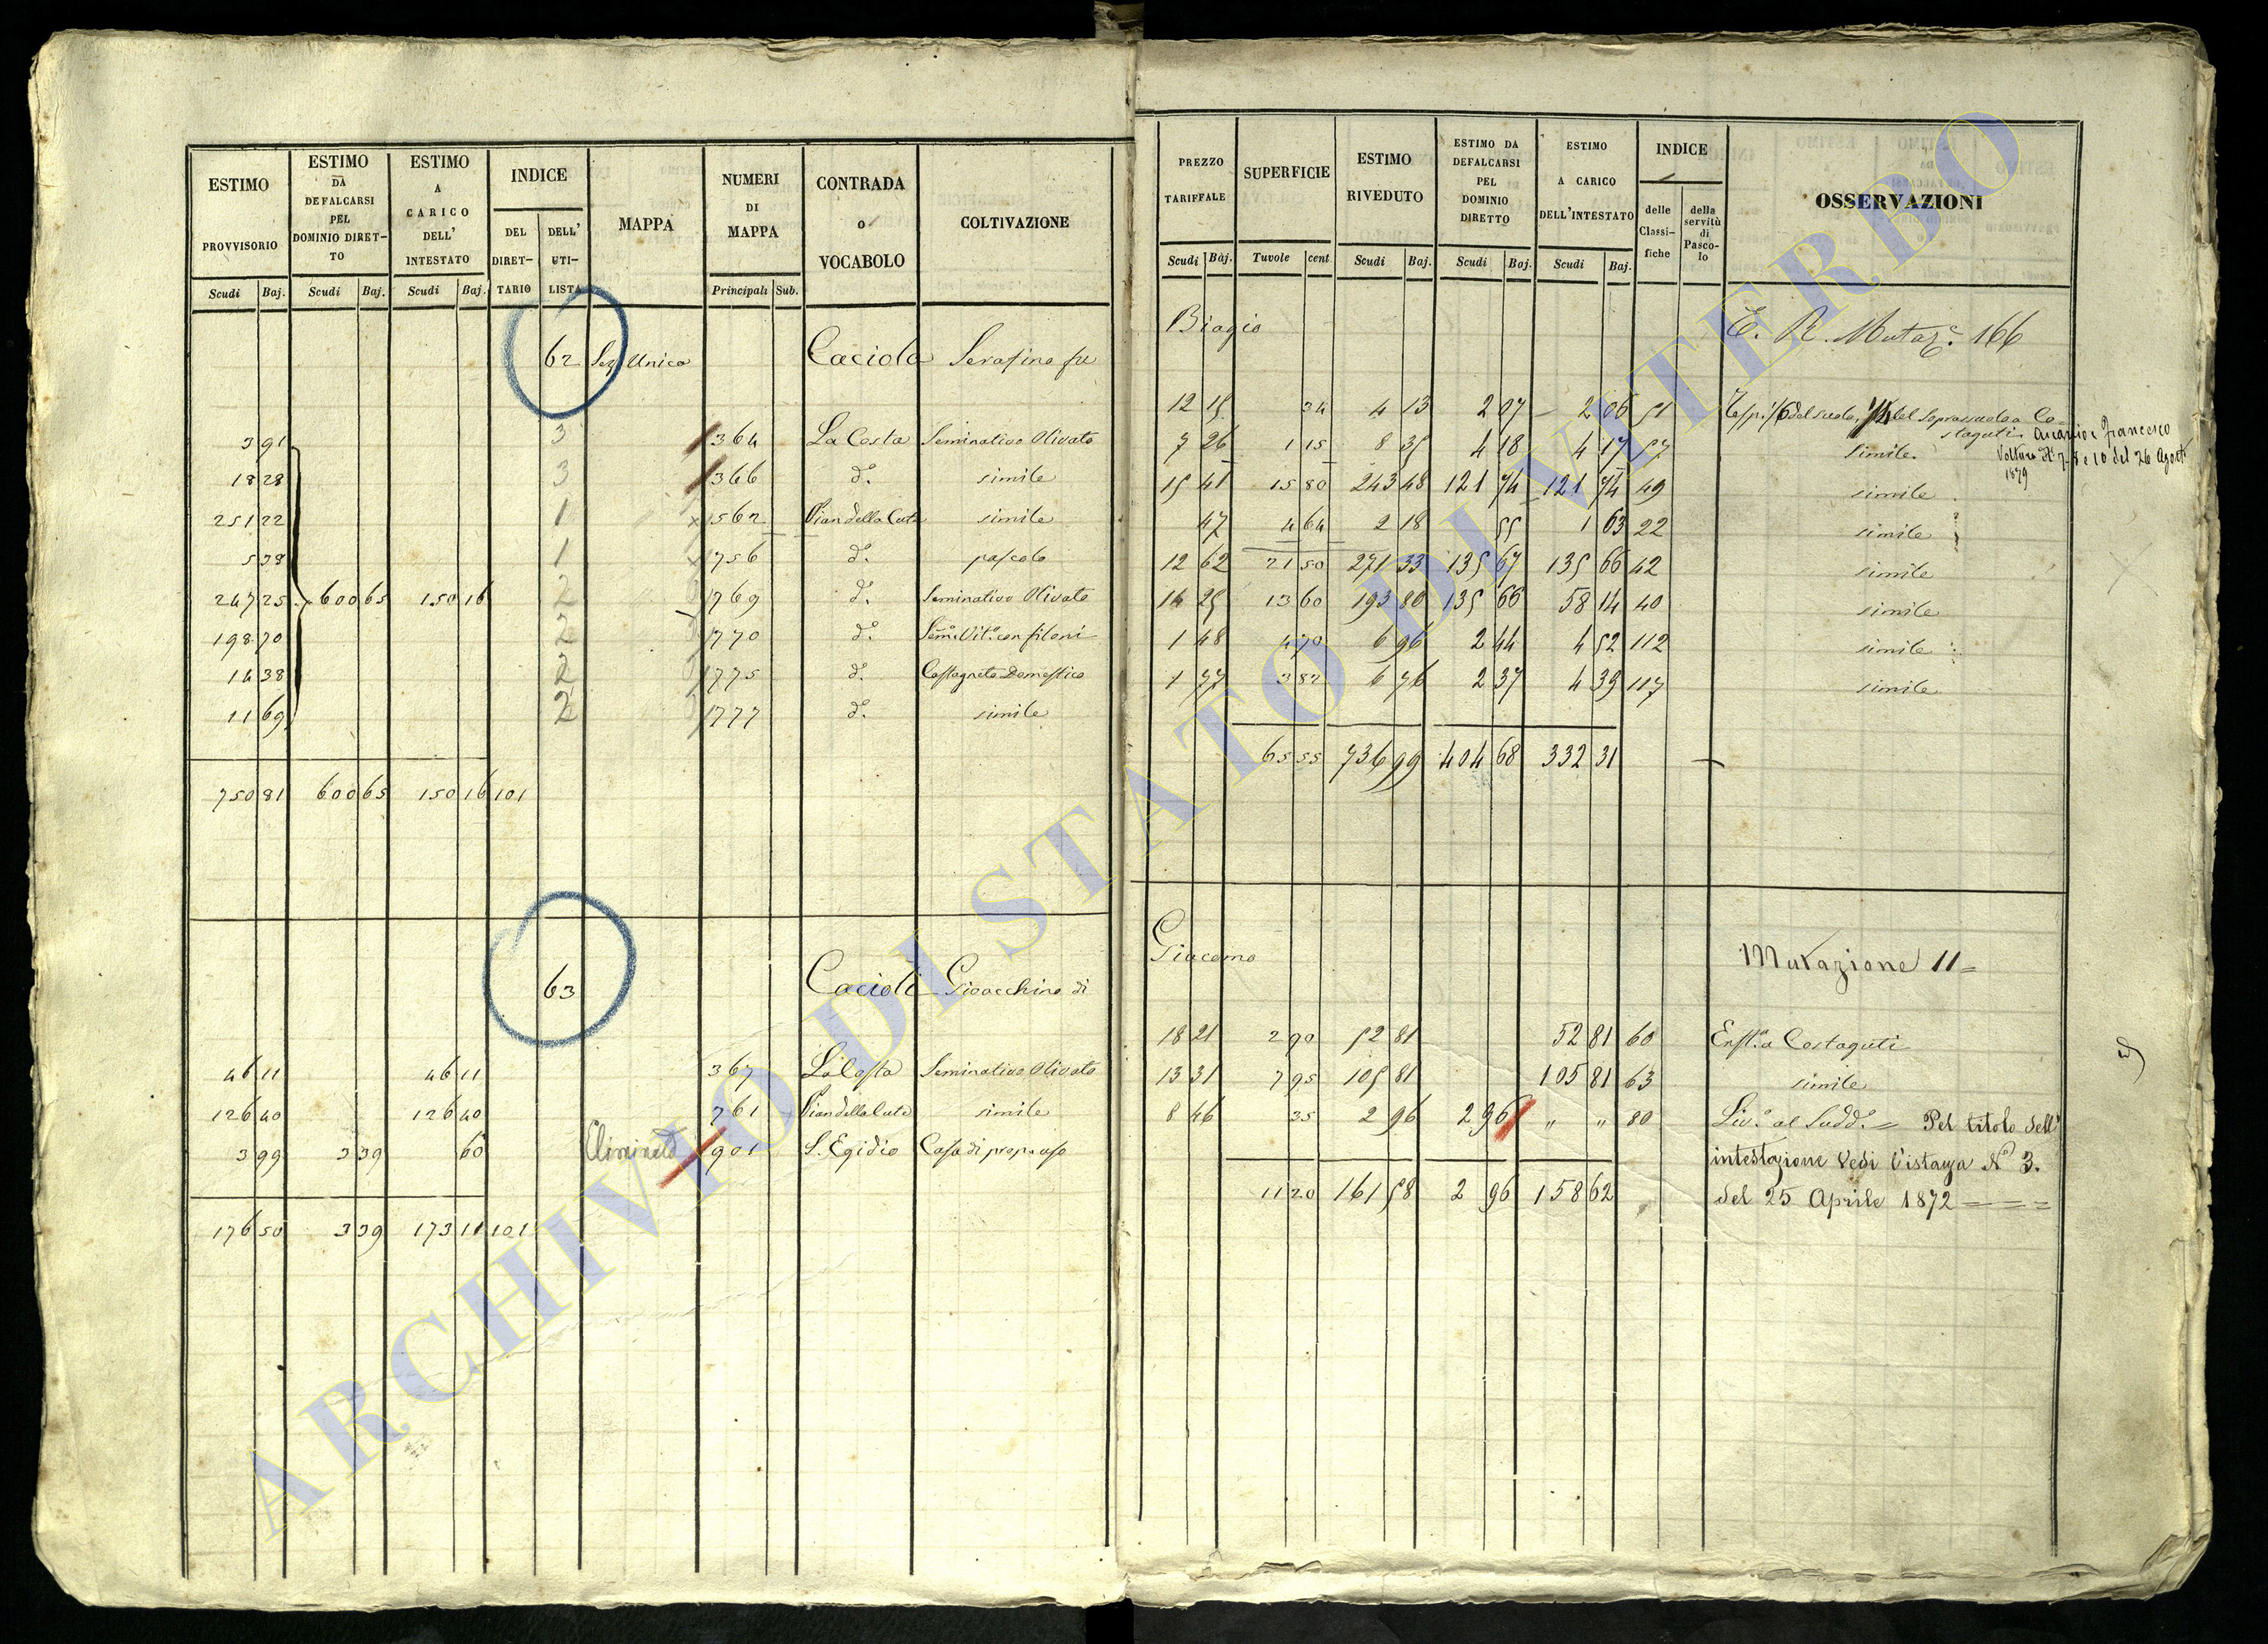 ESTIMO PROVVISORIO | ESTIMO DA DEFALCARSI PEL DOMINIO DIRETTO | ESTIMO A CARICO DELL' INTESTATO | INDICE DEL DIRETTARIO | DELL' UTILISTA | MAPPA | NUMERI DI MAPPA | CONTRADA o VOCABOLO | COLTIVAZIONE
Scudi Baj. | Scudi Baj. | Scudi Baj. | Principali Sub.
62 Sez Unica Caciola Serafino fu
3 91 3 364 La Costa Seminativo Olivato
18 28 3 366 d.º simile
251 22 1 1562 Pian della simile
5 38 1 1756 d.º pascolo
247 25 600 65 150 16 2 1769 d.º Seminativo Olivato
198 70 2 1770 d.º Sem.º Vit.º con filoni
14 38 2 1775 d.º Castagneto Domestico
11 69 2 1777 d.º simile
750 81 600 65 150 16 101
63 Cacioli Gioacchino di
46 11 46 11 367 La Costa Seminativo Olivato
126 40 126 40 761 Pian della simile
3 99 3 39 60 Eliminato 901 S. Egidio Casa di prop. uso
176 50 3 39 173 11 101
PREZZO TARIFFALE | SUPERFICIE | ESTIMO RIVEDUTO | ESTIMO DA DEFALCARSI PEL DOMINIO DIRETTO | ESTIMO A CARICO DELL'INTESTATO | INDICE delle Classifiche | della servitù di Pascolo | OSSERVAZIONI
Scudi Baj. | Tavole cent. | Scudi Baj. | Scudi Baj. | Scudi Baj.
Biagio E. R. Mutaz.e 166
12 15 34 4 13 2 07 2 06 51 del suolo, del soprassuolo a Co-
staguti Ascanio e Francesco
7 26 1 15 8 35 4 18 4 17 57 simile. Volture Nº 7-8 e 10 del 26 Agosto
1879
15 41 15 80 243 48 121 74 121 74 49 simile
47 4 64 2 18 55 1 63 22 simile
12 62 21 50 271 33 135 67 135 66 42 simile
14 25 13 60 193 80 135 66 58 14 40 simile
1 48 4 70 6 96 2 44 4 52 112 simile
1 77 3 82 6 76 2 37 4 39 117 simile
65 55 736 99 404 68 332 31
Giacomo Mutazione 11=
18 21 2 90 52 81 52 81 60 Enft.a a Costaguti
13 31 7 95 105 81 105 81 63 simile
8 46 35 2 96 2 96 " " 80 Liv.º al Sudd.º = Pel titolo dell'
intestazione Vedi l'istanza Nº 3.
11 20 161 58 2 96 158 62 del 25 Aprile 1872 = = =
ARCHIVIO DI STATO DI VITERBO